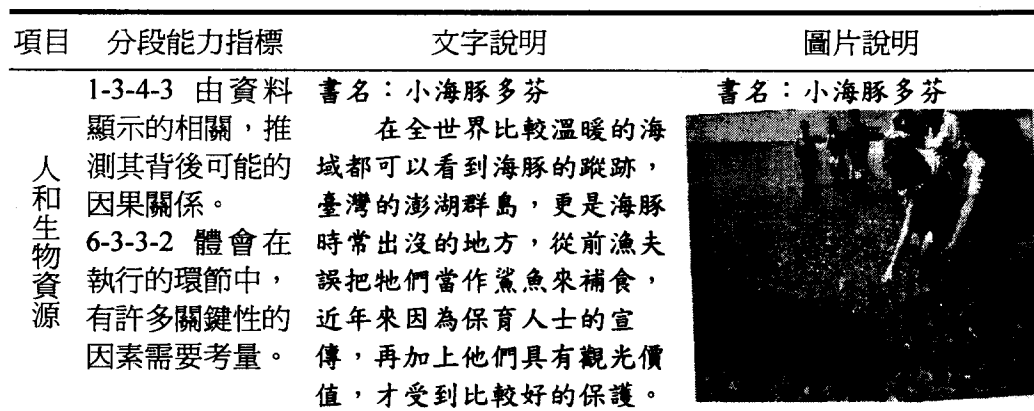 項目 分段能力指標 文字說明 圖片說明
人和生物資源
1-3-4-3 由資料
顯示的相關，推
測其背後可能的
因果關係。
6-3-3-2 體會在
執行的環節中，
有許多關鍵性的
因素需要考量。
書名：小海豚多芬
在全世界比較溫暖的海
域都可以看到海豚的蹤跡，
臺灣的澎湖群島，更是海豚
時常出沒的地方，從前漁夫
誤把牠們當作鯊魚來補食，
近年來因為保育人士的宣
傳，再加上他們具有觀光價
值，才受到比較好的保護。
書名：小海豚多芬